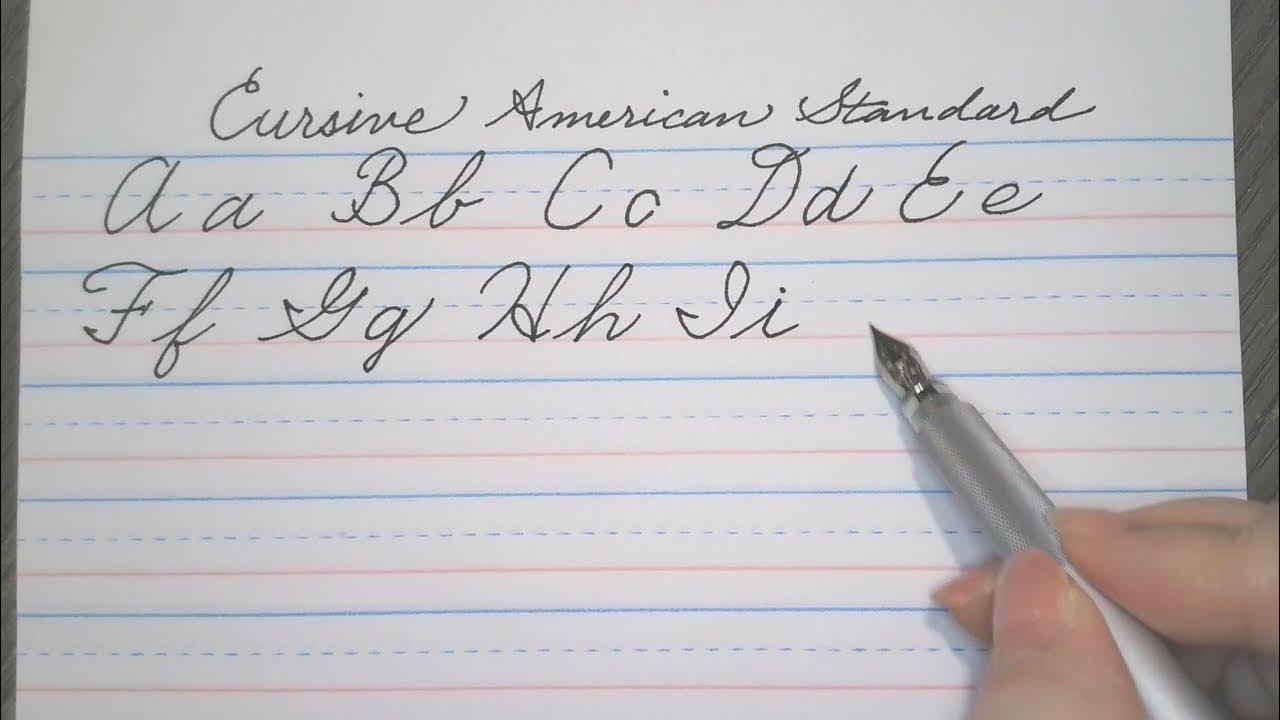 Cursive American Standard
Aa Bb Cc Dd Ee
Ff Gg Hh Ii